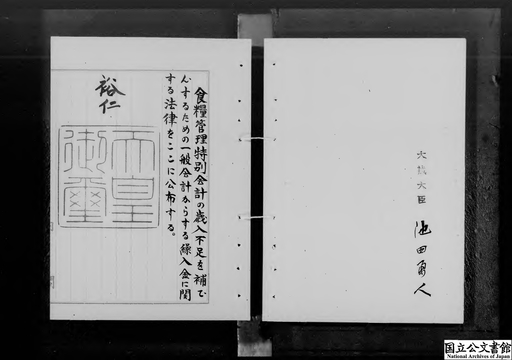 大蔵大臣
池田勇人
食糧管理特別会計の歳入不足を補て
んするための一般会計からする繰入金に関
する法律をここに公布する。
裕仁
天皇
御璽
国立公文書館
National Archives of Japan